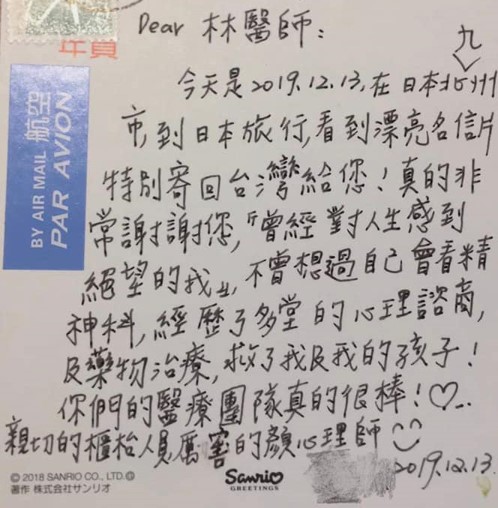 年賀
BY AIR MAIL 航空
PAR AVION
Dear 林醫師:
今天是2019.12.13,在日本北九州
市,到日本旅行,看到漂亮名信片
特別寄回台灣給您!真的非
常謝謝您,「曾經對人生感到
絕望的我」,不曾想過自己會看精
神科,經歷了多堂的心理諮商,
及藥物治療,救了我及我的孩子!
你們的醫療團隊真的很棒!♡...
親切的櫃枱人員厲害的顏心理師
2019.12.13.
© 2018 SANRIO CO., LTD.
著作 株式会社サンリオ
Sanrio
GREETINGS